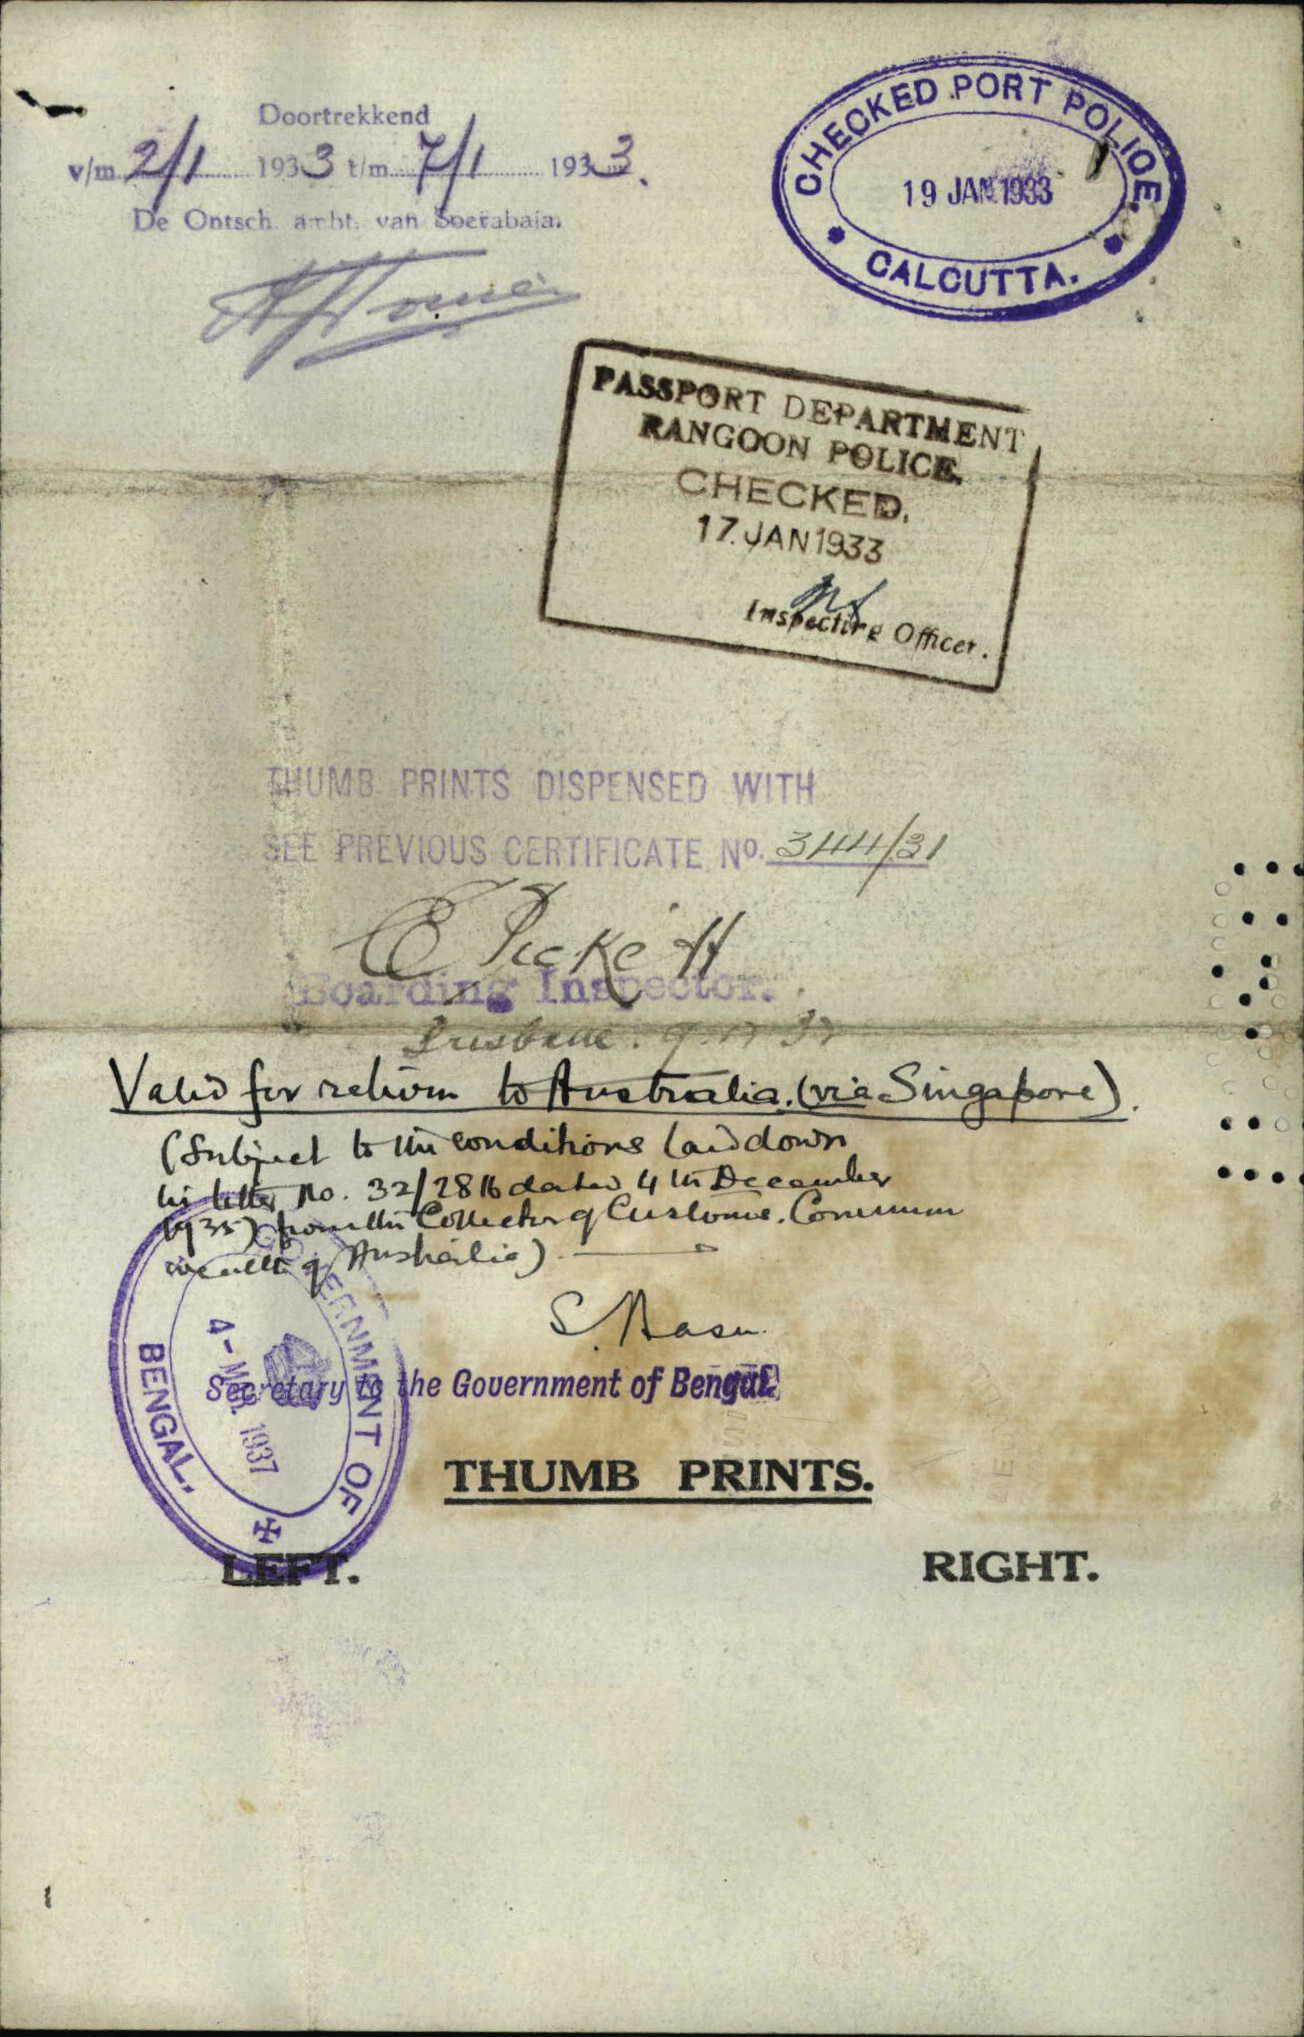 Doortrekkend
v/m 2/1 1933 t/m 7/1 1933.
De Ontsch. ambt. van Soerabaia.
CHECKED PORT POLICE.
19 JAN 1933
CALCUTTA.
PASSPORT DEPARTMENT
RANGOON POLICE.
CHECKED.
17 JAN 1933
Inspecting Officer.
THUMB PRINTS DISPENSED WITH
SEE PREVIOUS CERTIFICATE No. 344/31
E Pickett
Boarding Inspector.
Brisbane. 9.12.32
Valid for return to Australia. (via Singapore).
(Subject to the conditions laid down
in letter No. 32/2816 dated 4th December
1935) from the Collector of Customs. Common
wealth of Australia)
S. Basu.
Secretary to the Government of Bengal.
GOVERNMENT OF
BENGAL.
4- 1937
THUMB PRINTS.
LEFT. RIGHT.